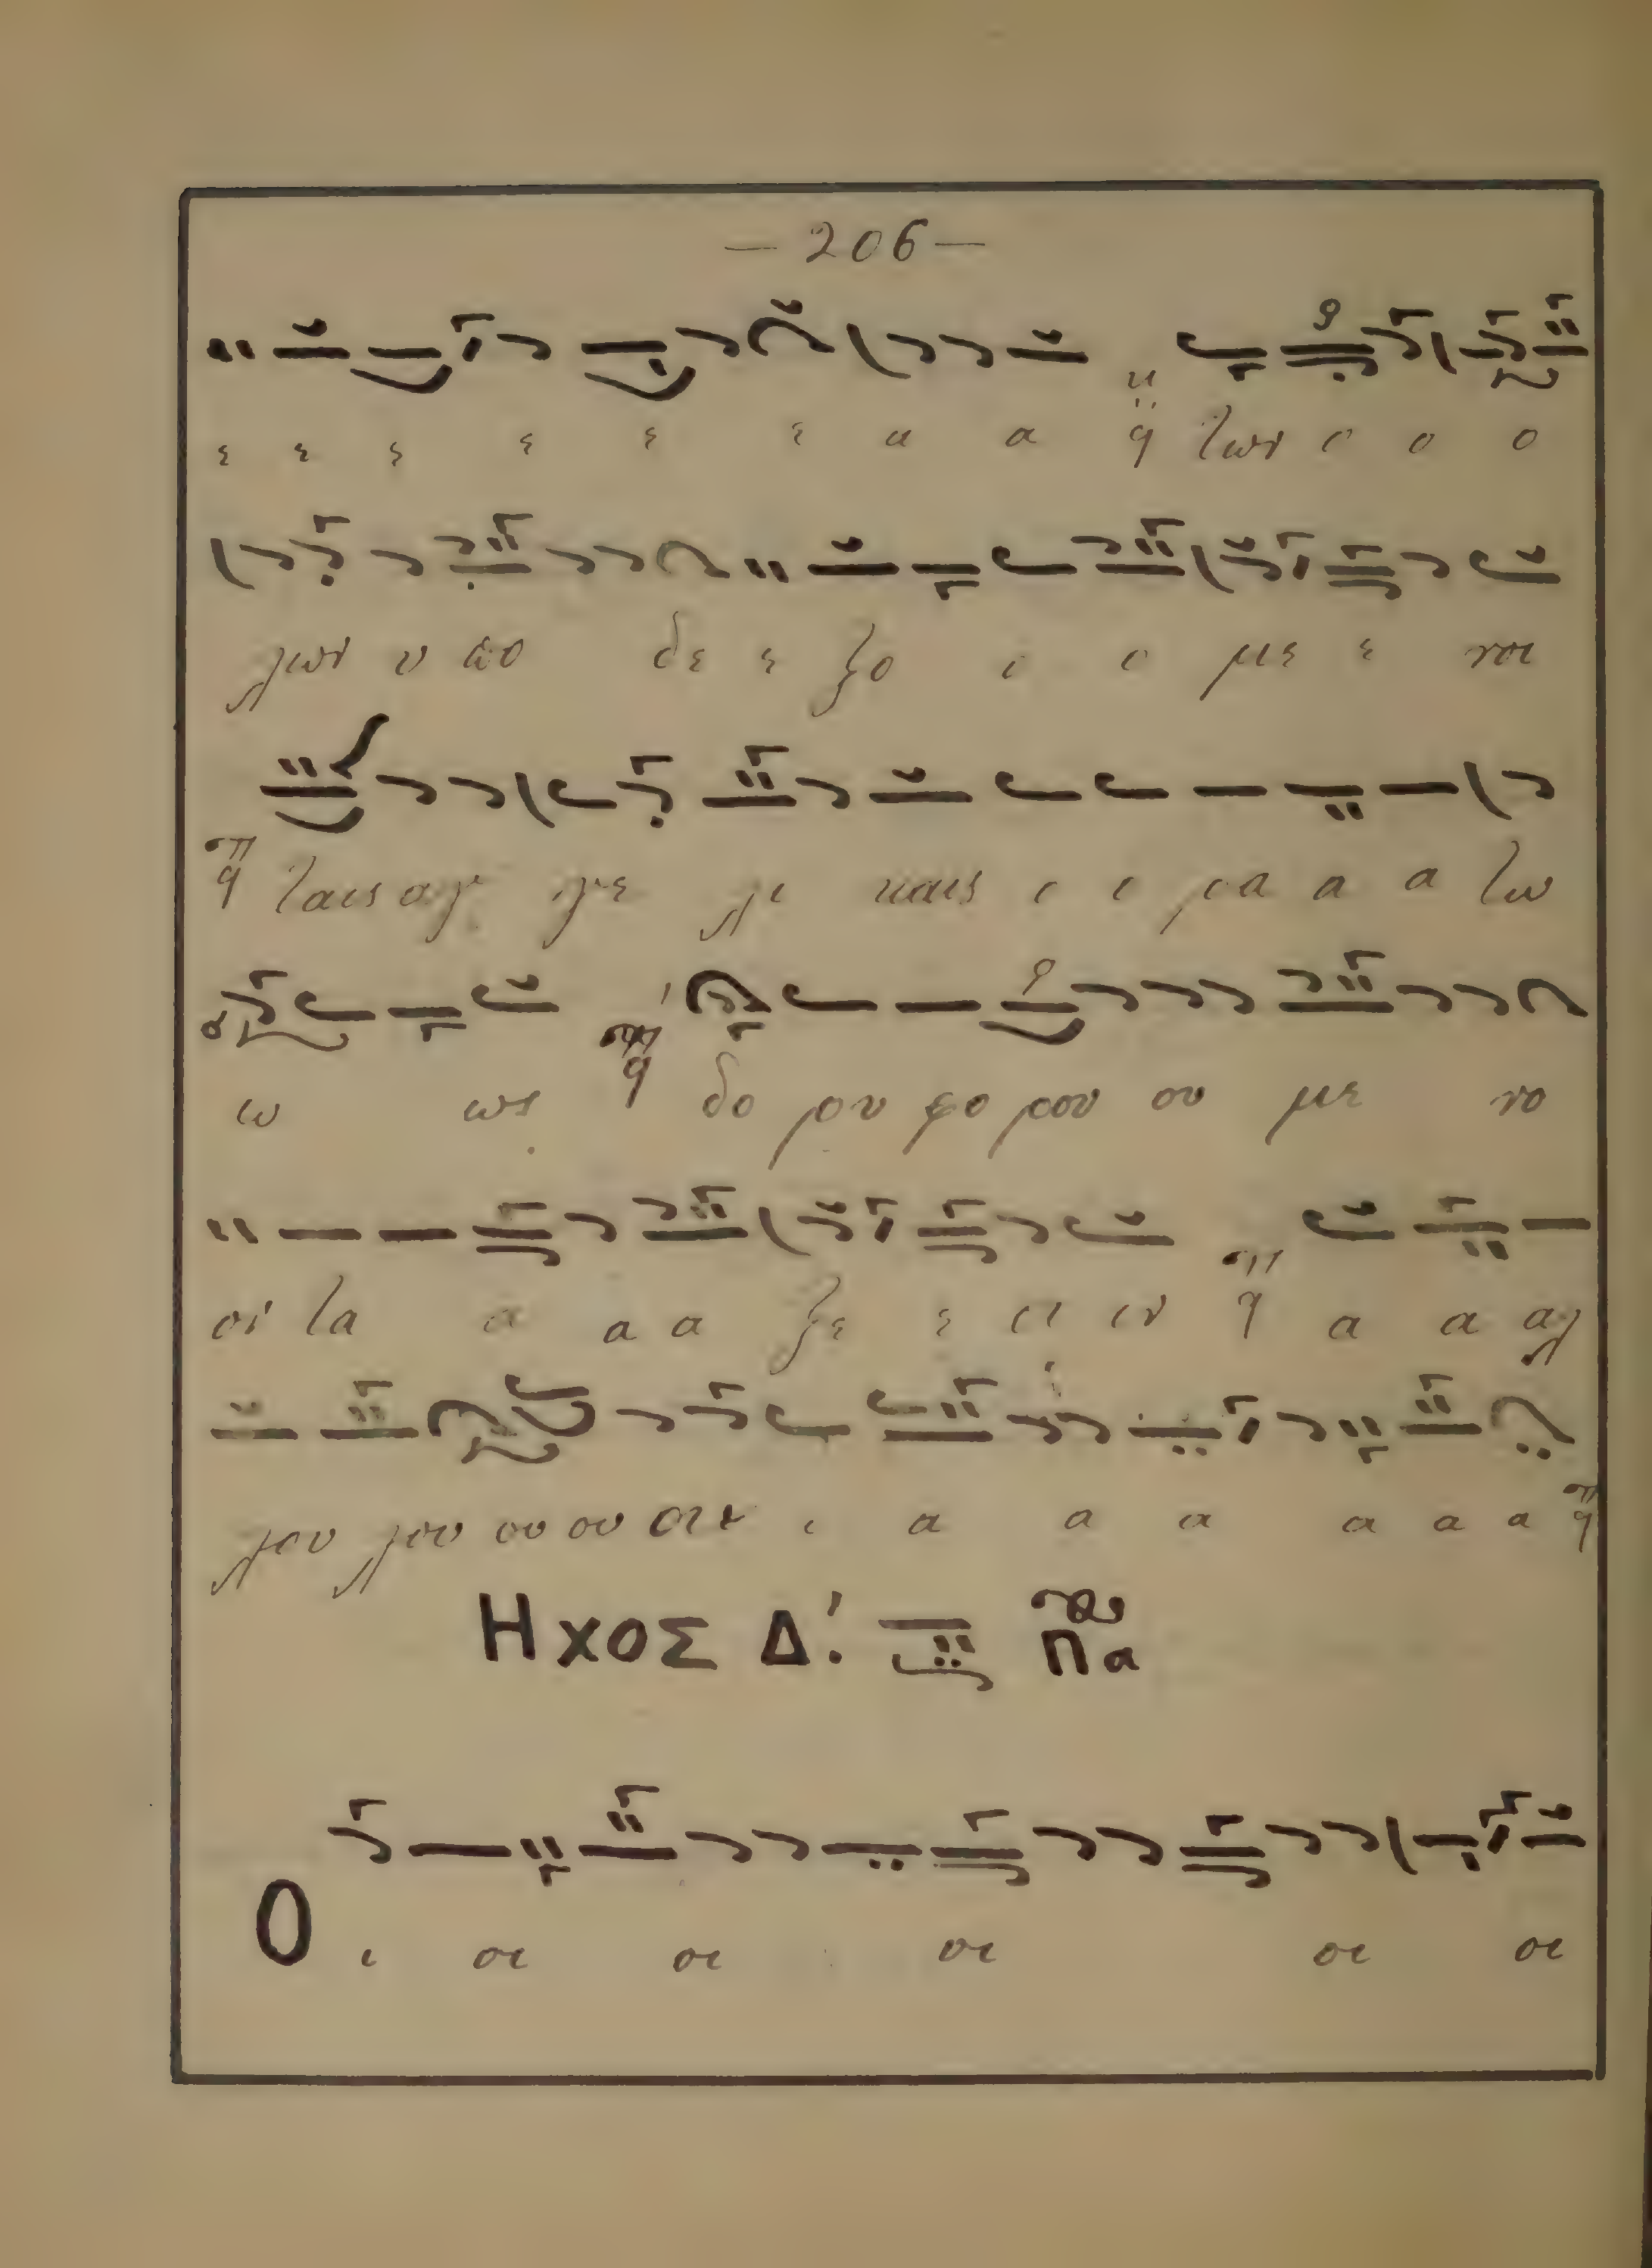 — 206 —
ε ε ε ε ε ε α α των ο ο ο
λων υ πο δε ε ξο ο ο με ε νοι
ταις αγ γε λι καις ι ι ρα α α τω
ω ως δο ρυ φο ρου ου με νο
ον τα α α α ξε ε σι ιν α α αλ
λου λου ου ου οι ι α α α α α α
Ηχος Δ΄. Πα
Ο ι οι οι οι οι οι